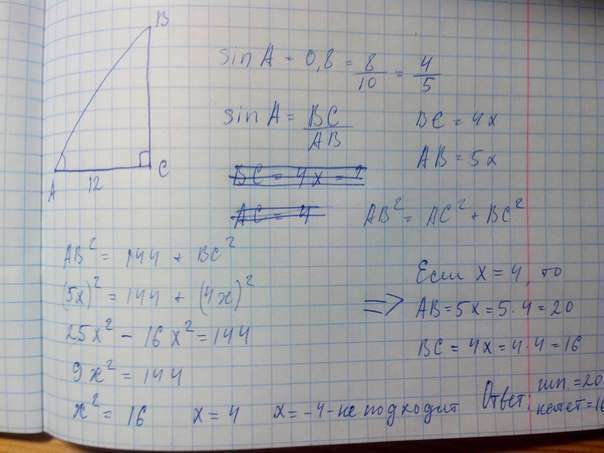 B
A 12 C
sin A = 0,8 = 8/10 = 4/5
sin A = BC/AB
BC = 4x
AB = 5x
BC = 4x = ?
AC = 4
AB² = AC² + BC²
AB² = 144 + BC²
(5x)² = 144 + (4x)²
25x² - 16x² = 144
9x² = 144
x² = 16 x = 4 x = -4 - не подходит
⇒ Если x = 4, то
AB = 5x = 5·4 = 20
BC = 4x = 4·4 = 16
Ответ: гип. = 20
катет = 16